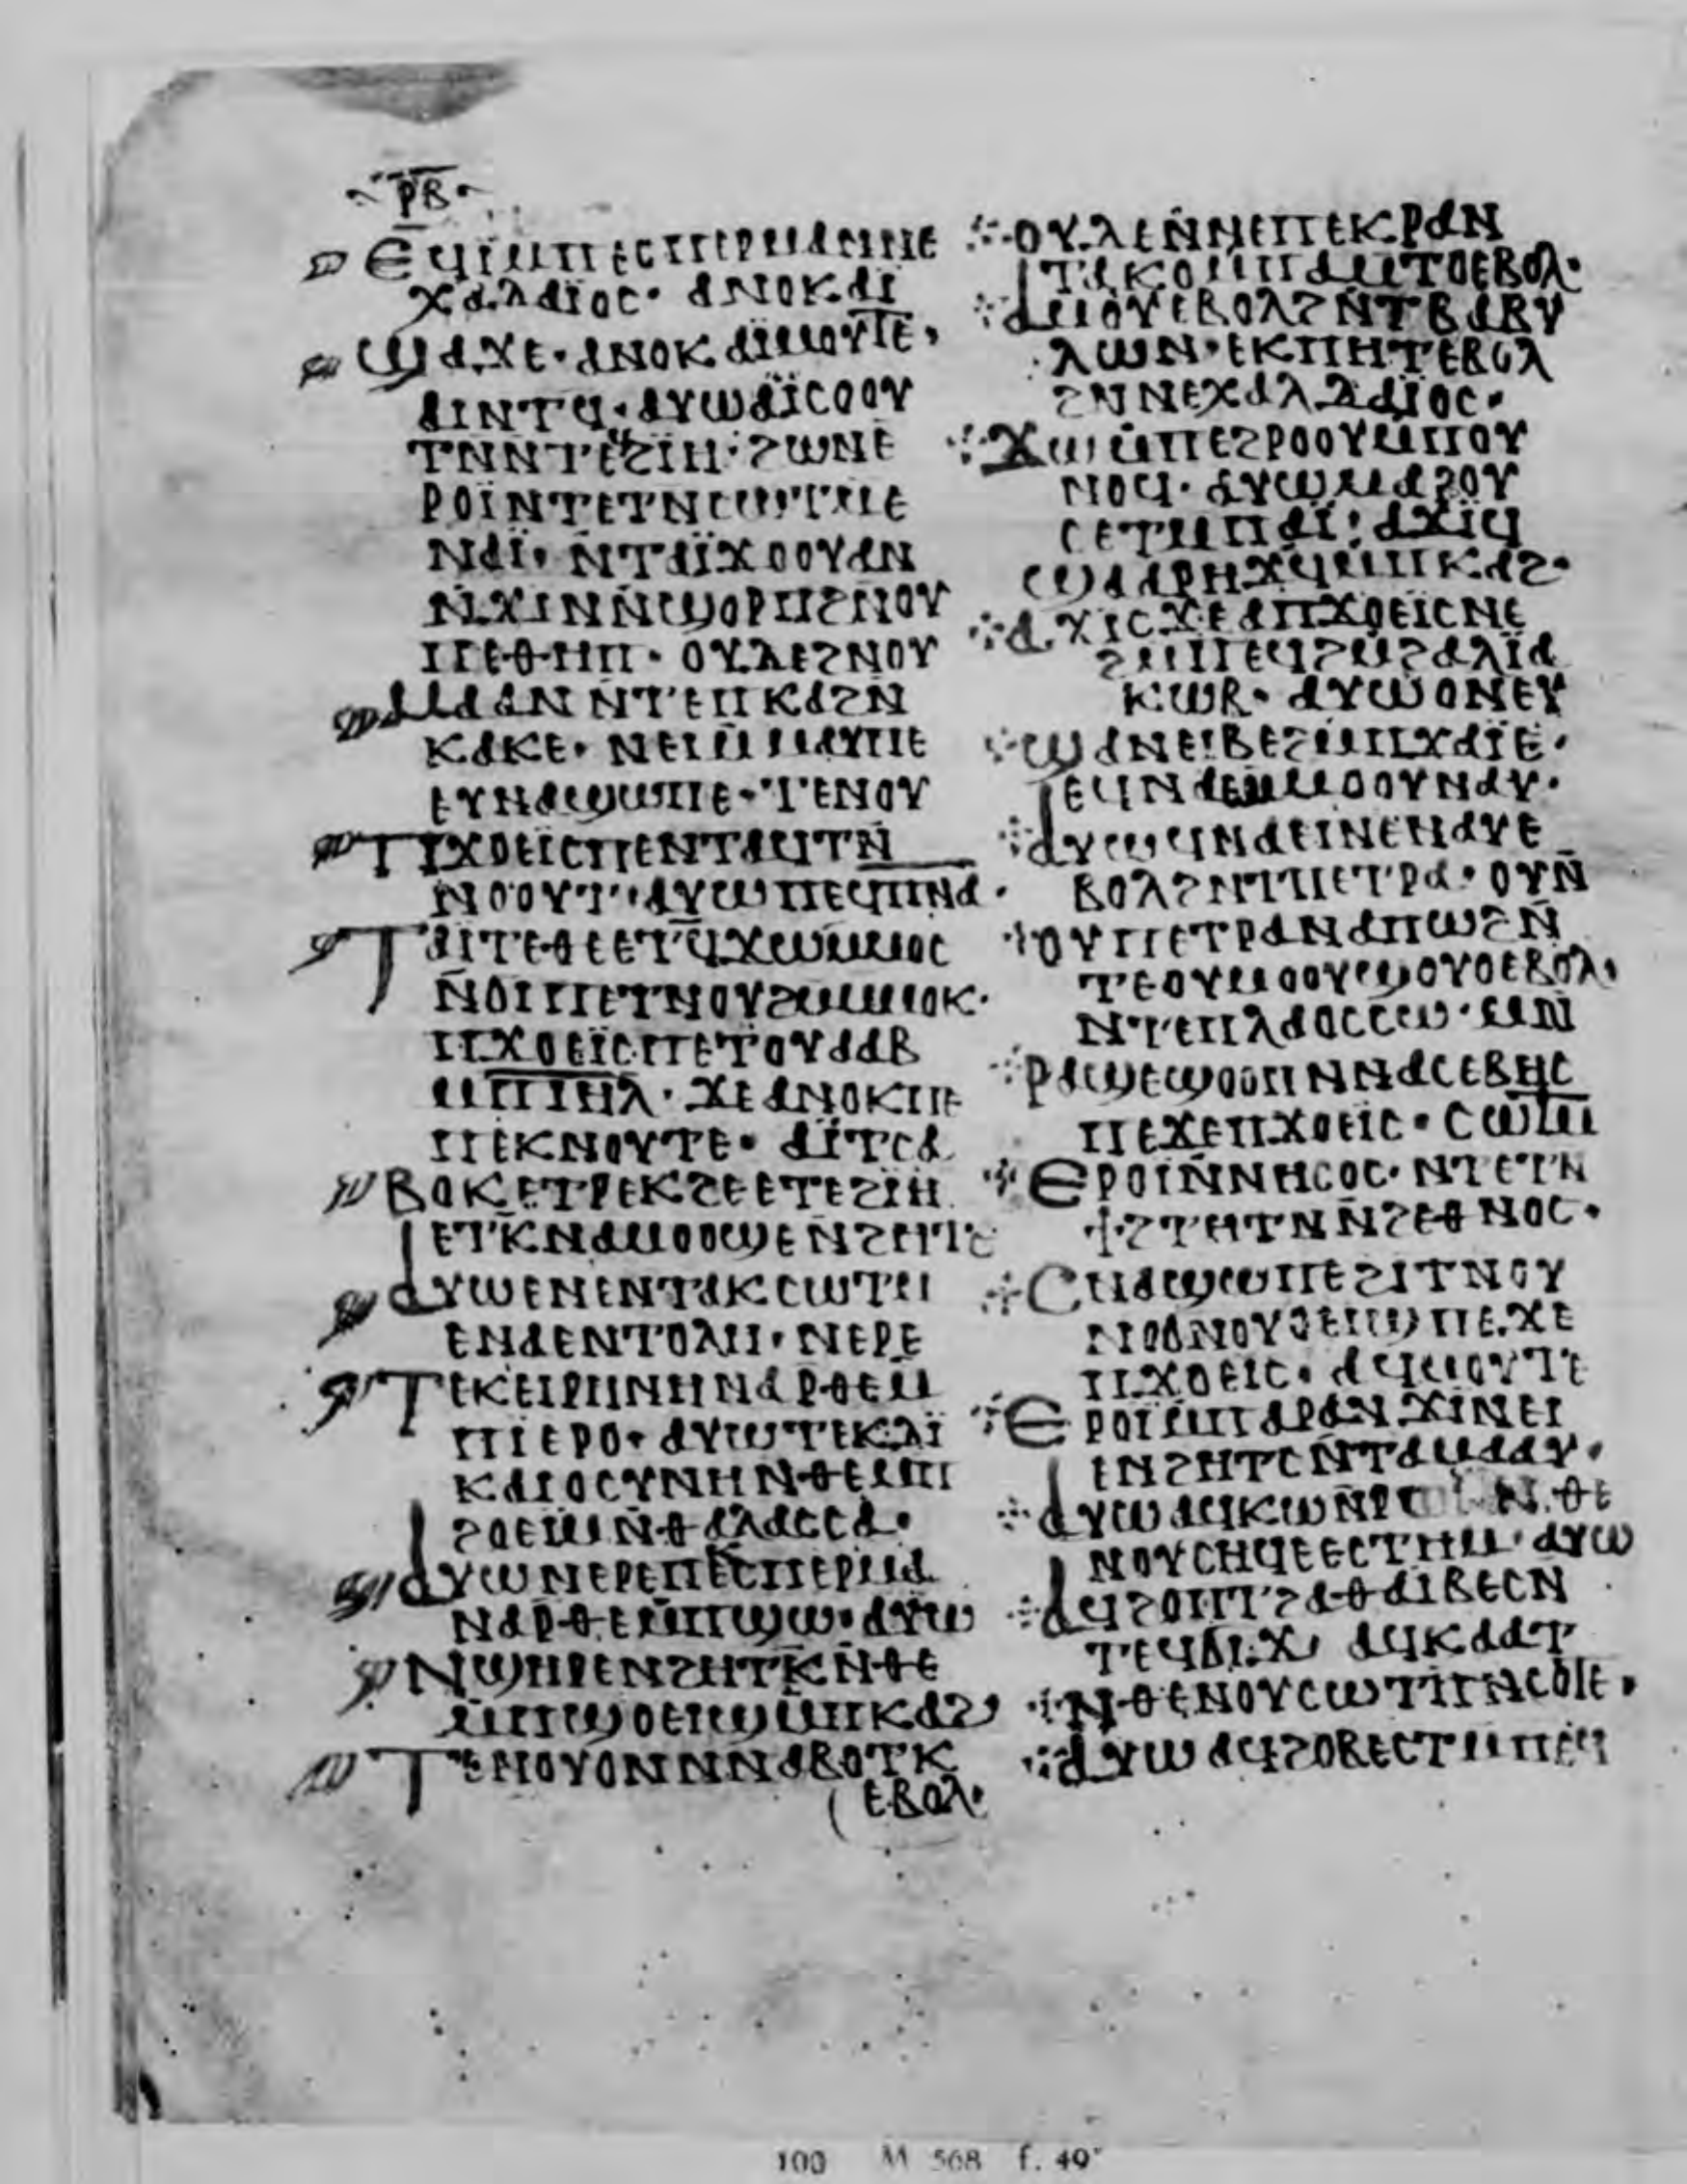 ⲣⲃ
ⲉϥⲓⲙⲡⲉⲥⲡⲉⲣⲙⲁⲛⲛⲉ
ⲭⲁⲗⲇⲁⲓⲟⲥ· ⲁⲛⲟⲕⲁⲓ
ϣⲁϫⲉ· ⲁⲛⲟⲕⲁⲓ̈ⲙⲟⲩⲧⲉ·
ⲁⲓⲛⲧϥ· ⲁⲩⲱⲁⲓ̈ⲥⲟⲟⲩ
ⲧⲛⲛⲧⲉϥϩⲓⲏ· ϩⲱⲛⲉ
ⲣⲟⲓ̈ⲛⲧⲉⲧⲛⲥⲱⲧⲙⲉ
ⲛⲁⲓ̈· ⲛⲧⲁⲓ̈ϫⲟⲟⲩⲁⲛ
ⲛϫⲓⲛⲛϣⲟⲣⲡϩⲛⲟⲩ
ⲡⲉⲑⲏⲡ· ⲟⲩⲇⲉϩⲛⲟⲩ
ⲙⲁⲁⲛⲛⲧⲉⲡⲕⲁϩⲛ
ⲕⲁⲕⲉ· ⲛⲉⲓⲙⲙⲁⲩⲡⲉ
ⲉⲩⲛⲁϣⲱⲡⲉ· ⲧⲉⲛⲟⲩ
ⲡϫⲟⲉⲓⲥⲡⲉⲛⲧⲁϥⲧⲛ
ⲛⲟⲟⲩⲧ· ⲁⲩⲱⲡⲉϥⲡⲛⲁ·
ⲧⲁⲓⲧⲉⲑⲉⲉⲧϥϫⲱⲙⲙⲟⲥ
ⲛϭⲓⲡⲉⲧⲛⲟⲩϩⲙⲙⲙⲟⲕ·
ⲡϫⲟⲉⲓ̈ⲥⲡⲉⲧⲟⲩⲁⲁⲃ
ⲙⲡⲓⲏⲗ· ϫⲉⲁⲛⲟⲕⲡⲉ
ⲡⲉⲕⲛⲟⲩⲧⲉ· ⲁⲓ̈ⲧⲥⲁ
ⲃⲟⲕⲉⲧⲣⲉⲕϩⲉⲉⲧⲉϩⲓⲏ
ⲉⲧⲕⲛⲁⲙⲟⲟϣⲉⲛϩⲏⲧⲥ
ⲁⲩⲱⲉⲛⲉⲛⲧⲁⲕⲥⲱⲧⲙ
ⲉⲛⲁⲉⲛⲧⲟⲗⲏ· ⲛⲉⲣⲉ
ⲧⲉⲕⲉⲓⲣⲏⲛⲏⲛⲁⲣⲑⲉⲙ
ⲡⲓⲉⲣⲟ· ⲁⲩⲱⲧⲉⲕⲇⲓ̈
ⲕⲁⲓⲟⲥⲩⲛⲏⲛⲑⲉⲙⲡ
ϩⲟⲉⲓⲙⲛⲑⲁⲗⲁⲥⲥⲁ·
ⲁⲩⲱⲛⲉⲣⲉⲡⲉⲕⲥⲡⲉⲣⲙⲁ
ⲛⲁⲣⲑⲉⲙⲡϣⲱ· ⲁⲩⲱ
ⲛϣⲏⲣⲉⲛϩⲏⲧⲕⲛⲑⲉ
ⲙⲡϣⲟⲉⲓϣⲙⲡⲕⲁϩ
ⲧⲉⲛⲟⲩϭⲛⲛⲛⲁⲃⲟⲧⲕ
ⲉⲃⲟⲗ·
ⲟⲩⲇⲉⲛⲛⲉⲡⲉⲕⲣⲁⲛ
ⲧⲁⲕⲟⲙⲡⲁⲙⲧⲟⲉⲃⲟⲗ·
ⲁⲙⲟⲩⲉⲃⲟⲗϩⲛⲧⲃⲁⲃⲩ
ⲗⲱⲛ· ⲉⲕⲡⲏⲧⲉⲃⲟⲗ
ϩⲛⲛⲉⲭⲁⲗⲇⲁⲓⲟⲥ·
ϫⲱⲙⲡⲉϩⲣⲟⲟⲩⲙⲡⲟⲩ
ⲛⲟϥ· ⲁⲩⲱⲙⲁⲣⲟⲩ
ⲥⲉⲧⲙⲡⲁⲓ̈: ⲁϫⲓϥ
ϣⲁⲁⲣⲏϫϥⲙⲡⲕⲁϩ·
ⲁϫⲓⲥϫⲉⲁⲡϫⲟⲉⲓⲥⲛⲉ
ϩⲙⲡⲉϥϩⲙϩⲁⲗⲓ̈ⲁ
ⲕⲱⲃ· ⲁⲩⲱⲟⲛⲉⲩ
ϣⲁⲛⲉⲓⲃⲉϩⲙⲡϫⲁⲓ̈ⲉ·
ϥⲛⲁⲉⲛⲙⲟⲟⲩⲛⲁⲩ·
ⲁⲩⲱϥⲛⲁⲉⲓⲛⲉⲛⲁⲩⲉ
ⲃⲟⲗϩⲛⲧⲡⲉⲧⲣⲁ· ⲟⲩⲛ
ⲟⲩⲡⲉⲧⲣⲁⲛⲁⲡⲱϩⲛ
ⲧⲉⲟⲩⲙⲟⲟⲩϣⲟⲩⲟⲉⲃⲟⲗ·
ⲛⲧⲉⲡⲗⲁⲟⲥⲥⲱ· ⲙⲙⲛ
ⲣⲁϣⲉϣⲟⲟⲡⲛⲛⲁⲥⲉⲃⲏⲥ
ⲡⲉϫⲉⲡϫⲟⲉⲓⲥ· ⲥⲱⲧⲙ
ⲉⲣⲟⲓⲛⲛⲏⲥⲟⲥ· ⲛⲧⲉⲧⲛ
ϯϩⲧⲏⲧⲛⲛϩⲉⲑⲛⲟⲥ·
ⲥⲛⲁϣⲱⲡⲉϩⲓⲧⲛⲟⲩ
ⲛⲟϭⲛⲟⲩⲟⲉⲓϣⲡⲉϫⲉ
ⲡϫⲟⲉⲓⲥ· ⲁϥⲙⲟⲩⲧⲉ
ⲉⲣⲟⲓ̈ⲙⲡⲁⲣⲁⲛϫⲓⲛⲉⲓ
ⲛϩⲏⲧⲥⲛⲧⲁⲙⲁⲁⲩ·
ⲁⲩⲱⲁϥⲕⲱⲛⲣⲱⲛⲑⲉ
ⲛⲟⲩⲥⲏϥⲉⲉⲥⲧⲏⲙ· ⲁⲩⲱ
ⲁϥϩⲟⲡⲧϩⲁⲑⲁⲓⲃⲉⲥⲛ
ⲧⲉϥϭⲓϫ ⲁϥⲕⲁⲁⲧ
ⲛⲑⲉⲛⲟⲩⲥⲱⲧⲡⲛⲥⲟⲧⲉ·
ⲁⲩⲱⲁϥϩⲟⲃⲉⲥⲧⲙⲡⲉϥ
100 M 568 f. 49ᵛ